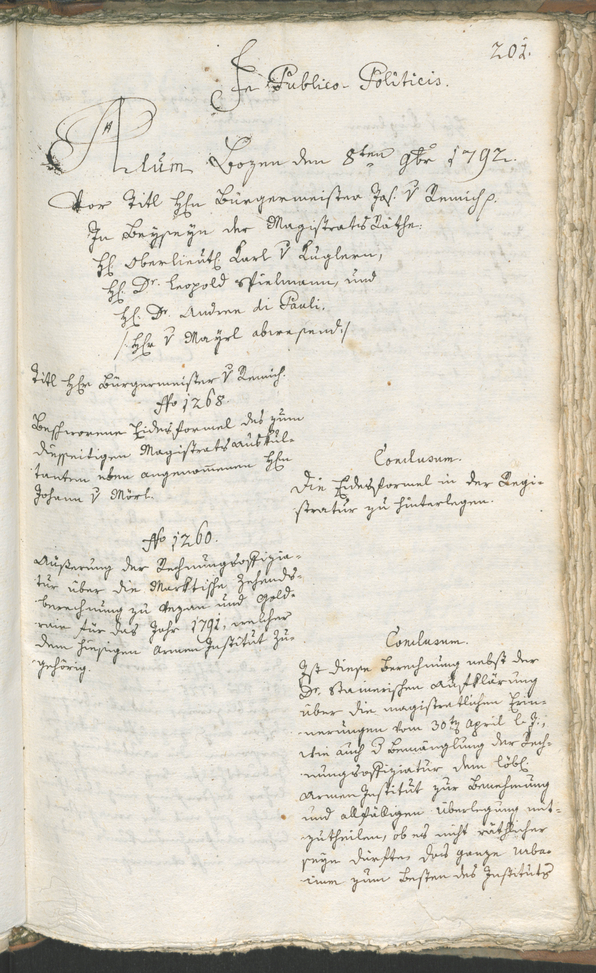 201.
In Publico-Politicis.
Actum Bozen den 8ten 9br 1792.
Vor Titl Hhn Bürgermeister Jos. v Remich p.
In Beyseyn der Magistrats Räthe:
H. Oberlieut. Karl v Kuglern,
H. Dr. Leopold Spielmann, und
H. Dr. Andree di Pauli.
/: Hhr v Mayrl abwesend :/
Titl Hhr Bürgermeister v Remich.
No 1268.
Beschworene Eidesformel des zum
diesseitigen Magistrats Auskul-
tanten eben angenommenen Hhn
Johann v Mörl.
Conclusum.
Die Eidesformel in der Regi-
stratur zu hinterlegen.
No 1260.
Äußerung der Rechnungsoffizia-
tur über die Marktische Zehends-
berechnung zu und Gold-
rain für das Jahr 1791, welcher
dem hiesigen Armen Institut zu-
gehörig.
Conclusum.
Ist diese Berechnung nebst der
Dr. Stainerischen Aufklärung
über die magistratlichen Erin-
nerungen vom 30ten April l. J.,
wie auch d Bemänglung der Rech-
nungsoffiziatur dem löbl.
Armen Institut zur Benehmung
und allfälligen Überlegung mit-
zutheilen, ob es nicht räthlicher
seyn dürfte das ganze Urba-
rium zum Besten des Instituts